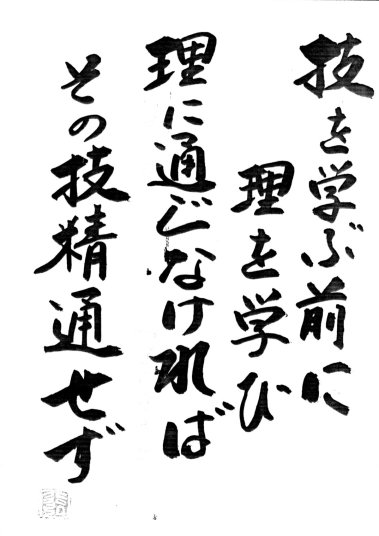 技を学ぶ前に
理を学び
理に通じなければ
その技精通せず